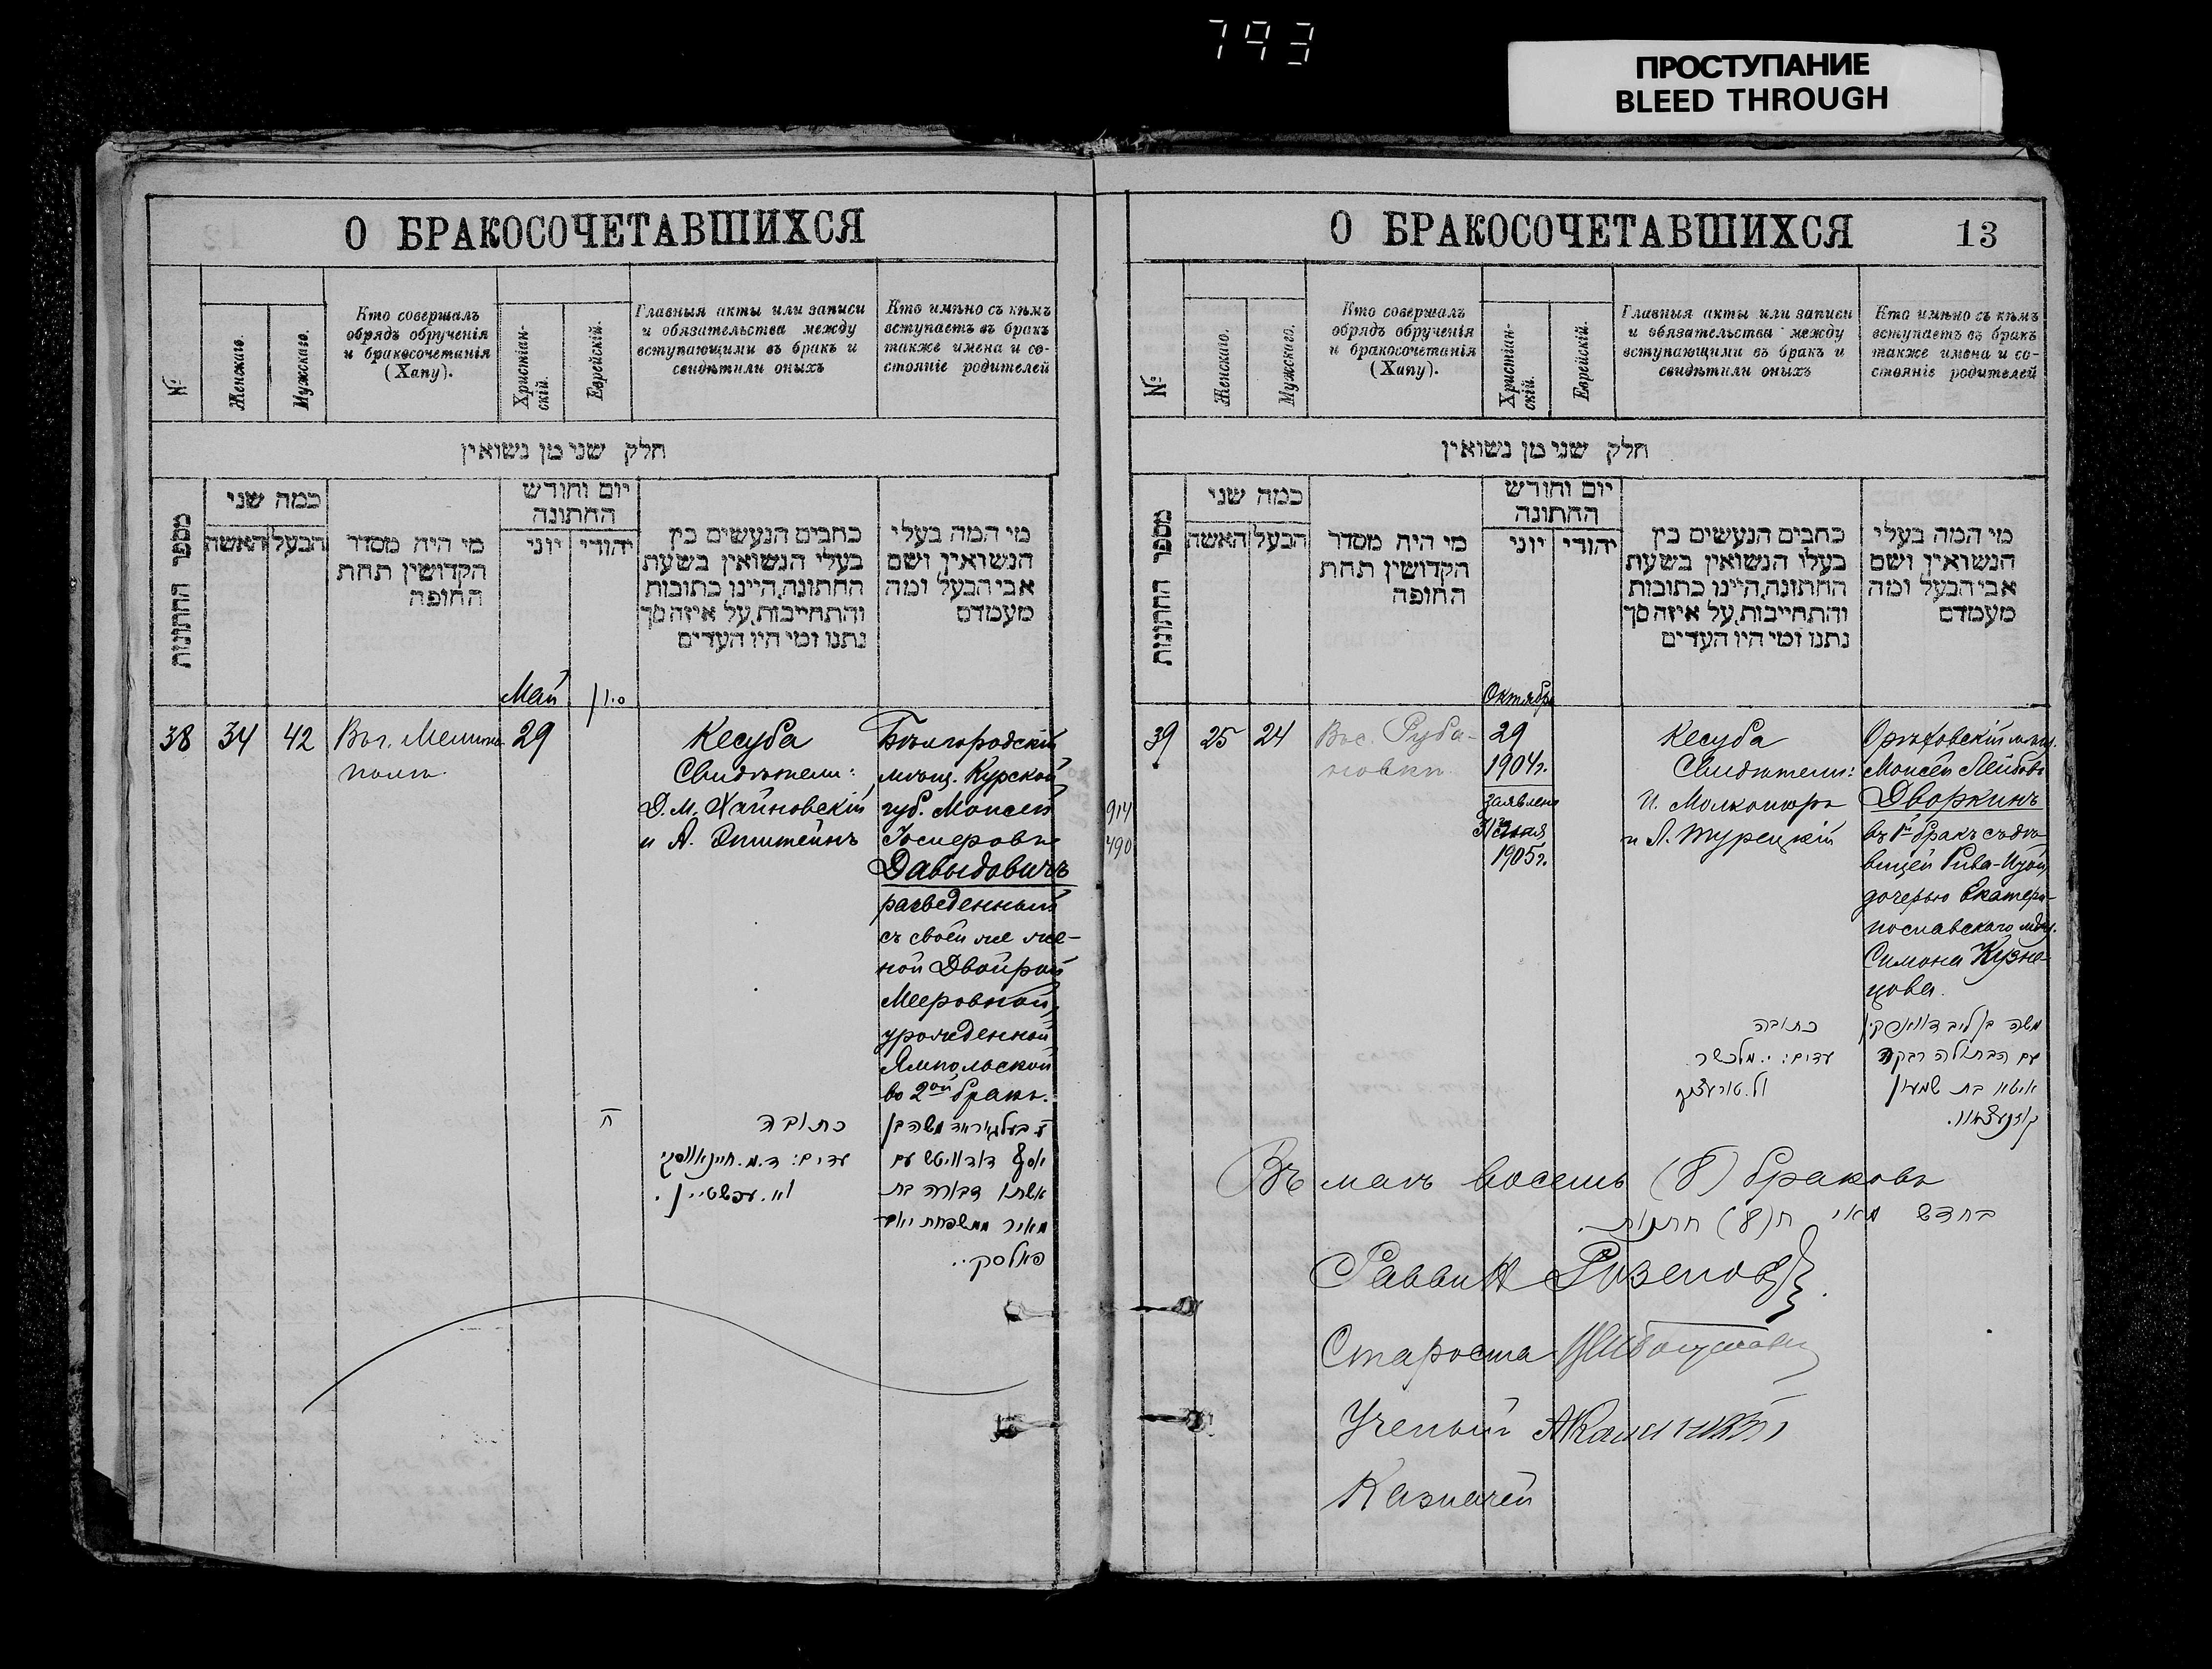 793
ПРОСТУПАНИЕ
BLEED THROUGH
О БРАКОСОЧЕТАВШИХСЯ
№
Женскаго.
Мужскаго.
Кто совершалъ
обрядъ обрученія
и бракосочетанія
(Хапу).
Христіан-
скій.
Еврейскій.
Главныя акты или записи
и обязательства между
вступающими въ бракъ и
свидѣтили оныхъ
Кто имѣно съ кѣмъ
вступаетъ въ бракъ
также имена и со-
стояніе родителей
חלק שני מן נשואין
מספר החתונות
כמה שני
האשה
הבעל
מי היה מסדר
הקדושין תחת
החופה
יום וחודש
החתונה
יוני
יהודי
כתבים הנעשים בין
בעלי הנשואין בשעת
החתונה, היינו כתובות
והתחייבות, על איזה סך
נתנו ומי היו העדים
מי המה בעלי
הנשואין ושם
אבי הבעל ומה
מעמדם
Май
סיון
38
34
42
29
Кесуба
Свидѣтели:
Д. М. Хайновскій
и А. Эпштейнъ
Бѣлгородскій
мѣщ. Курской
губ. Моисей
Іосифовъ
Давыдовичъ
разведенный
съ своей же же-
ной Двойрой
Мееровной,
урожденной
Ямпольской
во 2ой бракъ.
ח
כתובה
עדים: ד. מ. חיינאווסקי
וא. עפשטיין.
משה בן
יוסף דוידאוויטש עם
אשתו דבורה בת
מאיר ממשפחת יאמ-
פאלסקי.
О БРАКОСОЧЕТАВШИХСЯ
13
№
Женскаго.
Мужскаго.
Кто совершалъ
обрядъ обрученія
и бракосочетанія
(Хапу).
Христіан-
скій.
Еврейскій.
Главныя акты или записи
и обязательства между
вступающими въ бракъ и
свидѣтили оныхъ
Кто имѣно съ кѣмъ
вступаетъ въ бракъ
также имена и со-
стояніе родителей
חלק שני מן נשואין
מספר החתונות
כמה שני
האשה
הבעל
מי היה מסדר
הקדושין תחת
החופה
יום וחודש
החתונה
יוני
יהודי
כתבים הנעשים בין
בעלי הנשואין בשעת
החתונה, היינו כתובות
והתחייבות, על איזה סך
נתנו ומי היו העדים
מי המה בעלי
הנשואין ושם
אבי הבעל ומה
מעמדם
Октябрь
914
490
39
25
24
29
1904г.
заявлено
1905г.
Кесуба
Свидѣтели:
и Л. Турецкій
Орѣховскій мѣщ.
Моисей Лейбовъ
Дворкинъ
въ 1й бракъ съ дѣ-
вицей
дочерью Екатери-
нославскаго мѣщ.
Симона Кузне-
цова.
כתובה
עדים: י. מלכשר
ול. טורעצקי
משה בן ליב דווארקין
עם הבתולה רבקה
איטא בת שמעון
קוזנעצאוו.
Въ маѣ восемь (8) браковъ
בחדש מאי ח (8) חתונות.
Раввинъ
Староста
Ученый
Казначей